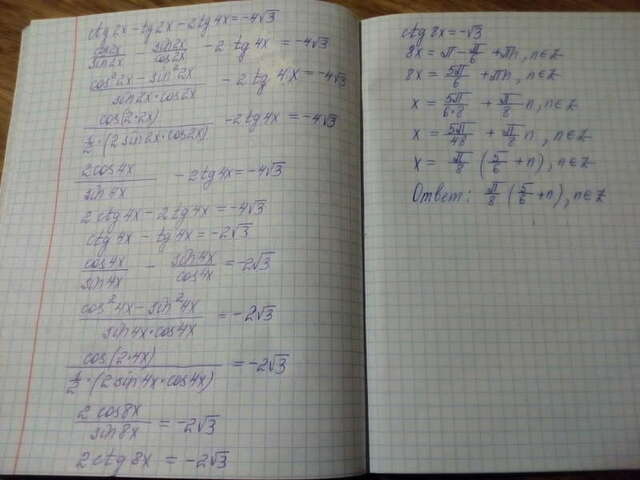 ctg 2x - tg 2x - 2tg 4x = -4√3
cos2x/sin2x - sin2x/cos2x - 2 tg 4x = -4√3
(cos²2x - sin²2x)/(sin2x·cos2x) - 2 tg 4x = -4√3
cos(2·2x)/(1/2·(2sin2x·cos2x)) - 2tg4x = -4√3
2cos4x/sin4x - 2tg4x = -4√3
2ctg4x - 2tg4x = -4√3
ctg4x - tg4x = -2√3
cos4x/sin4x - sin4x/cos4x = -2√3
(cos²4x - sin²4x)/(sin4x·cos4x) = -2√3
cos(2·4x)/(1/2·(2sin4x·cos4x)) = -2√3
2cos8x/sin8x = -2√3
2ctg8x = -2√3
ctg 8x = -√3
8x = π - π/6 + πn, n∈Z
8x = 5π/6 + πn, n∈Z
x = 5π/(6·8) + π/8 n, n∈Z
x = 5π/48 + π/8 n, n∈Z
x = π/8 (5/6 + n), n∈Z
Ответ: π/8 (5/6 + n), n∈Z